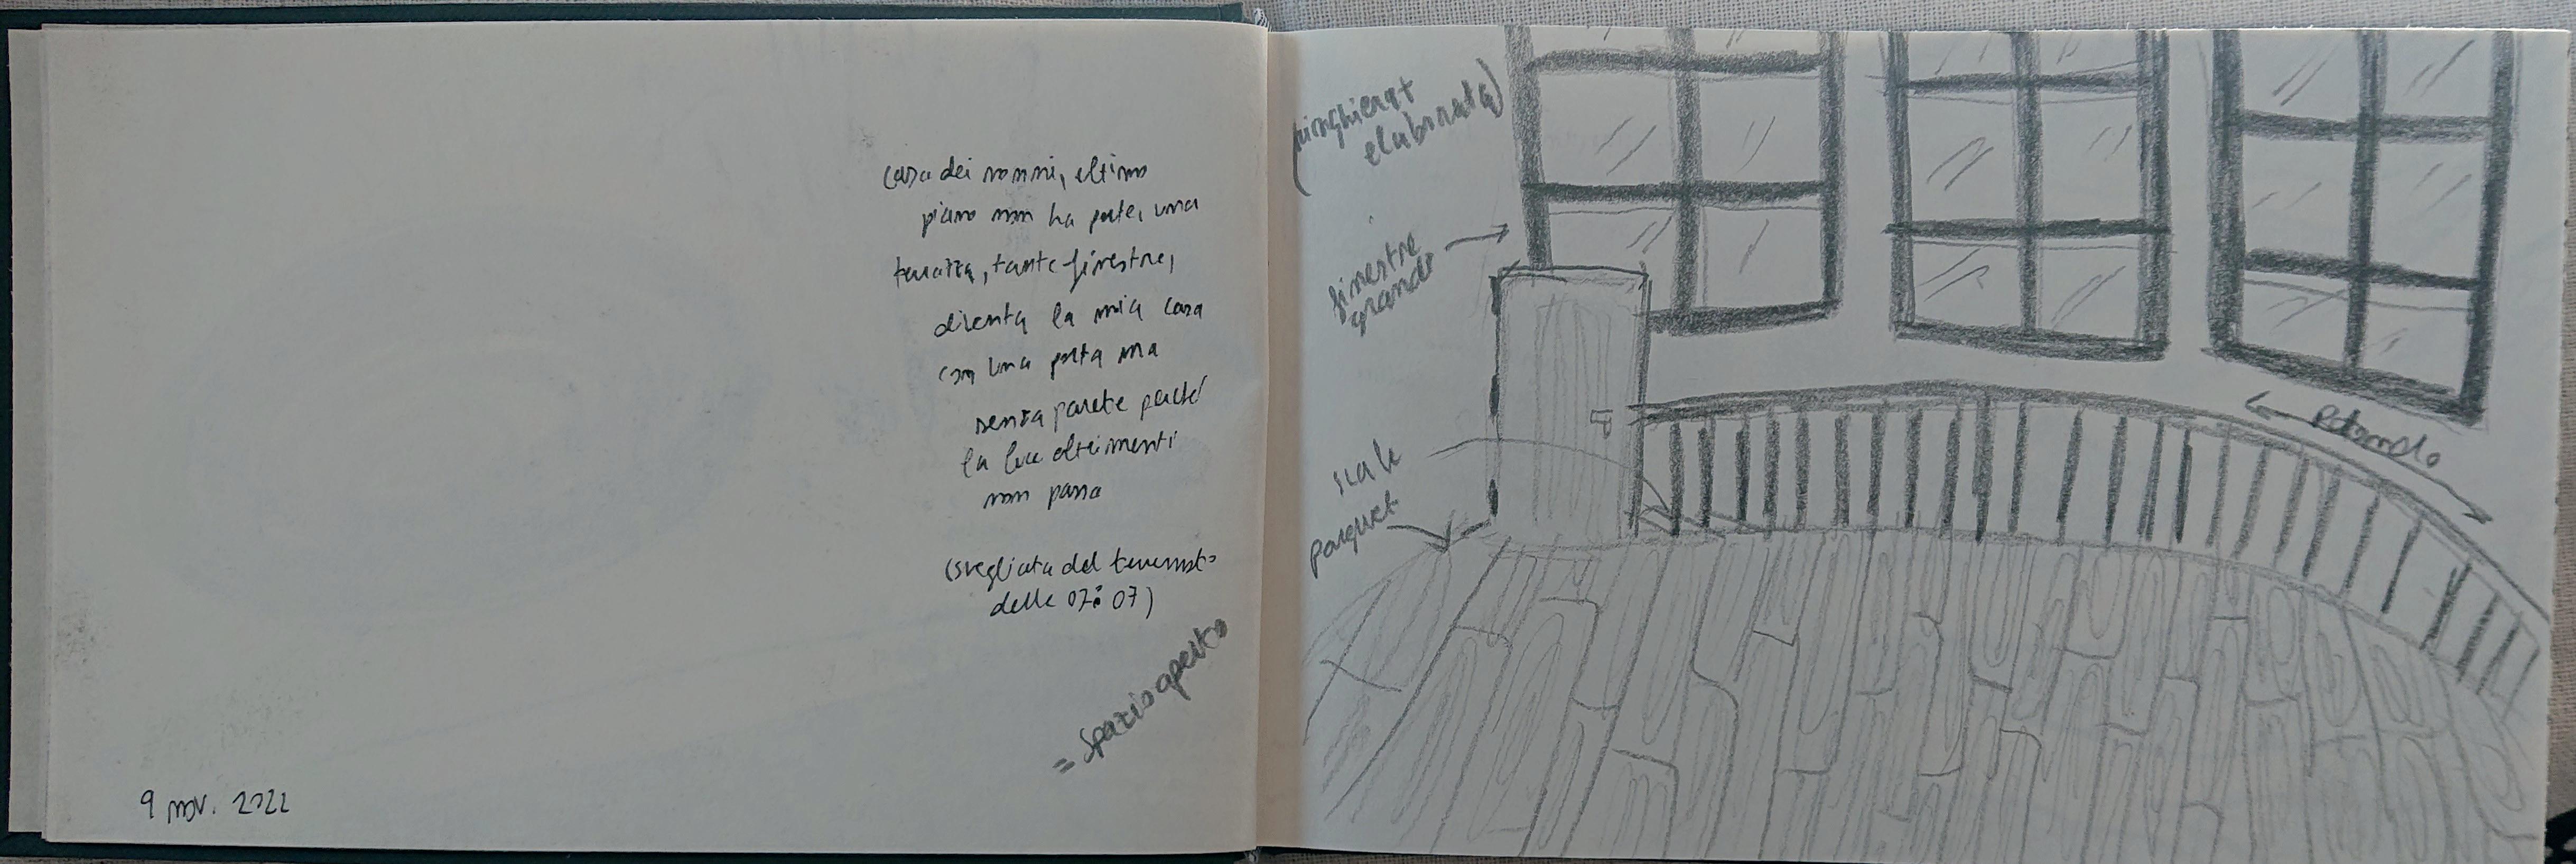 casa dei nonni, ultimo
piano non ha porte, una
terrazza, tante finestre,
diventa la mia casa
con una porta ma
senza parete perché
la luce altrimenti
non passa
(svegliata dal terremoto
delle 07:07)
= spazio aperto
9 nov. 2022
(ringhiera
elaborata)
finestre
grandi
scale
parquet
Rotondo